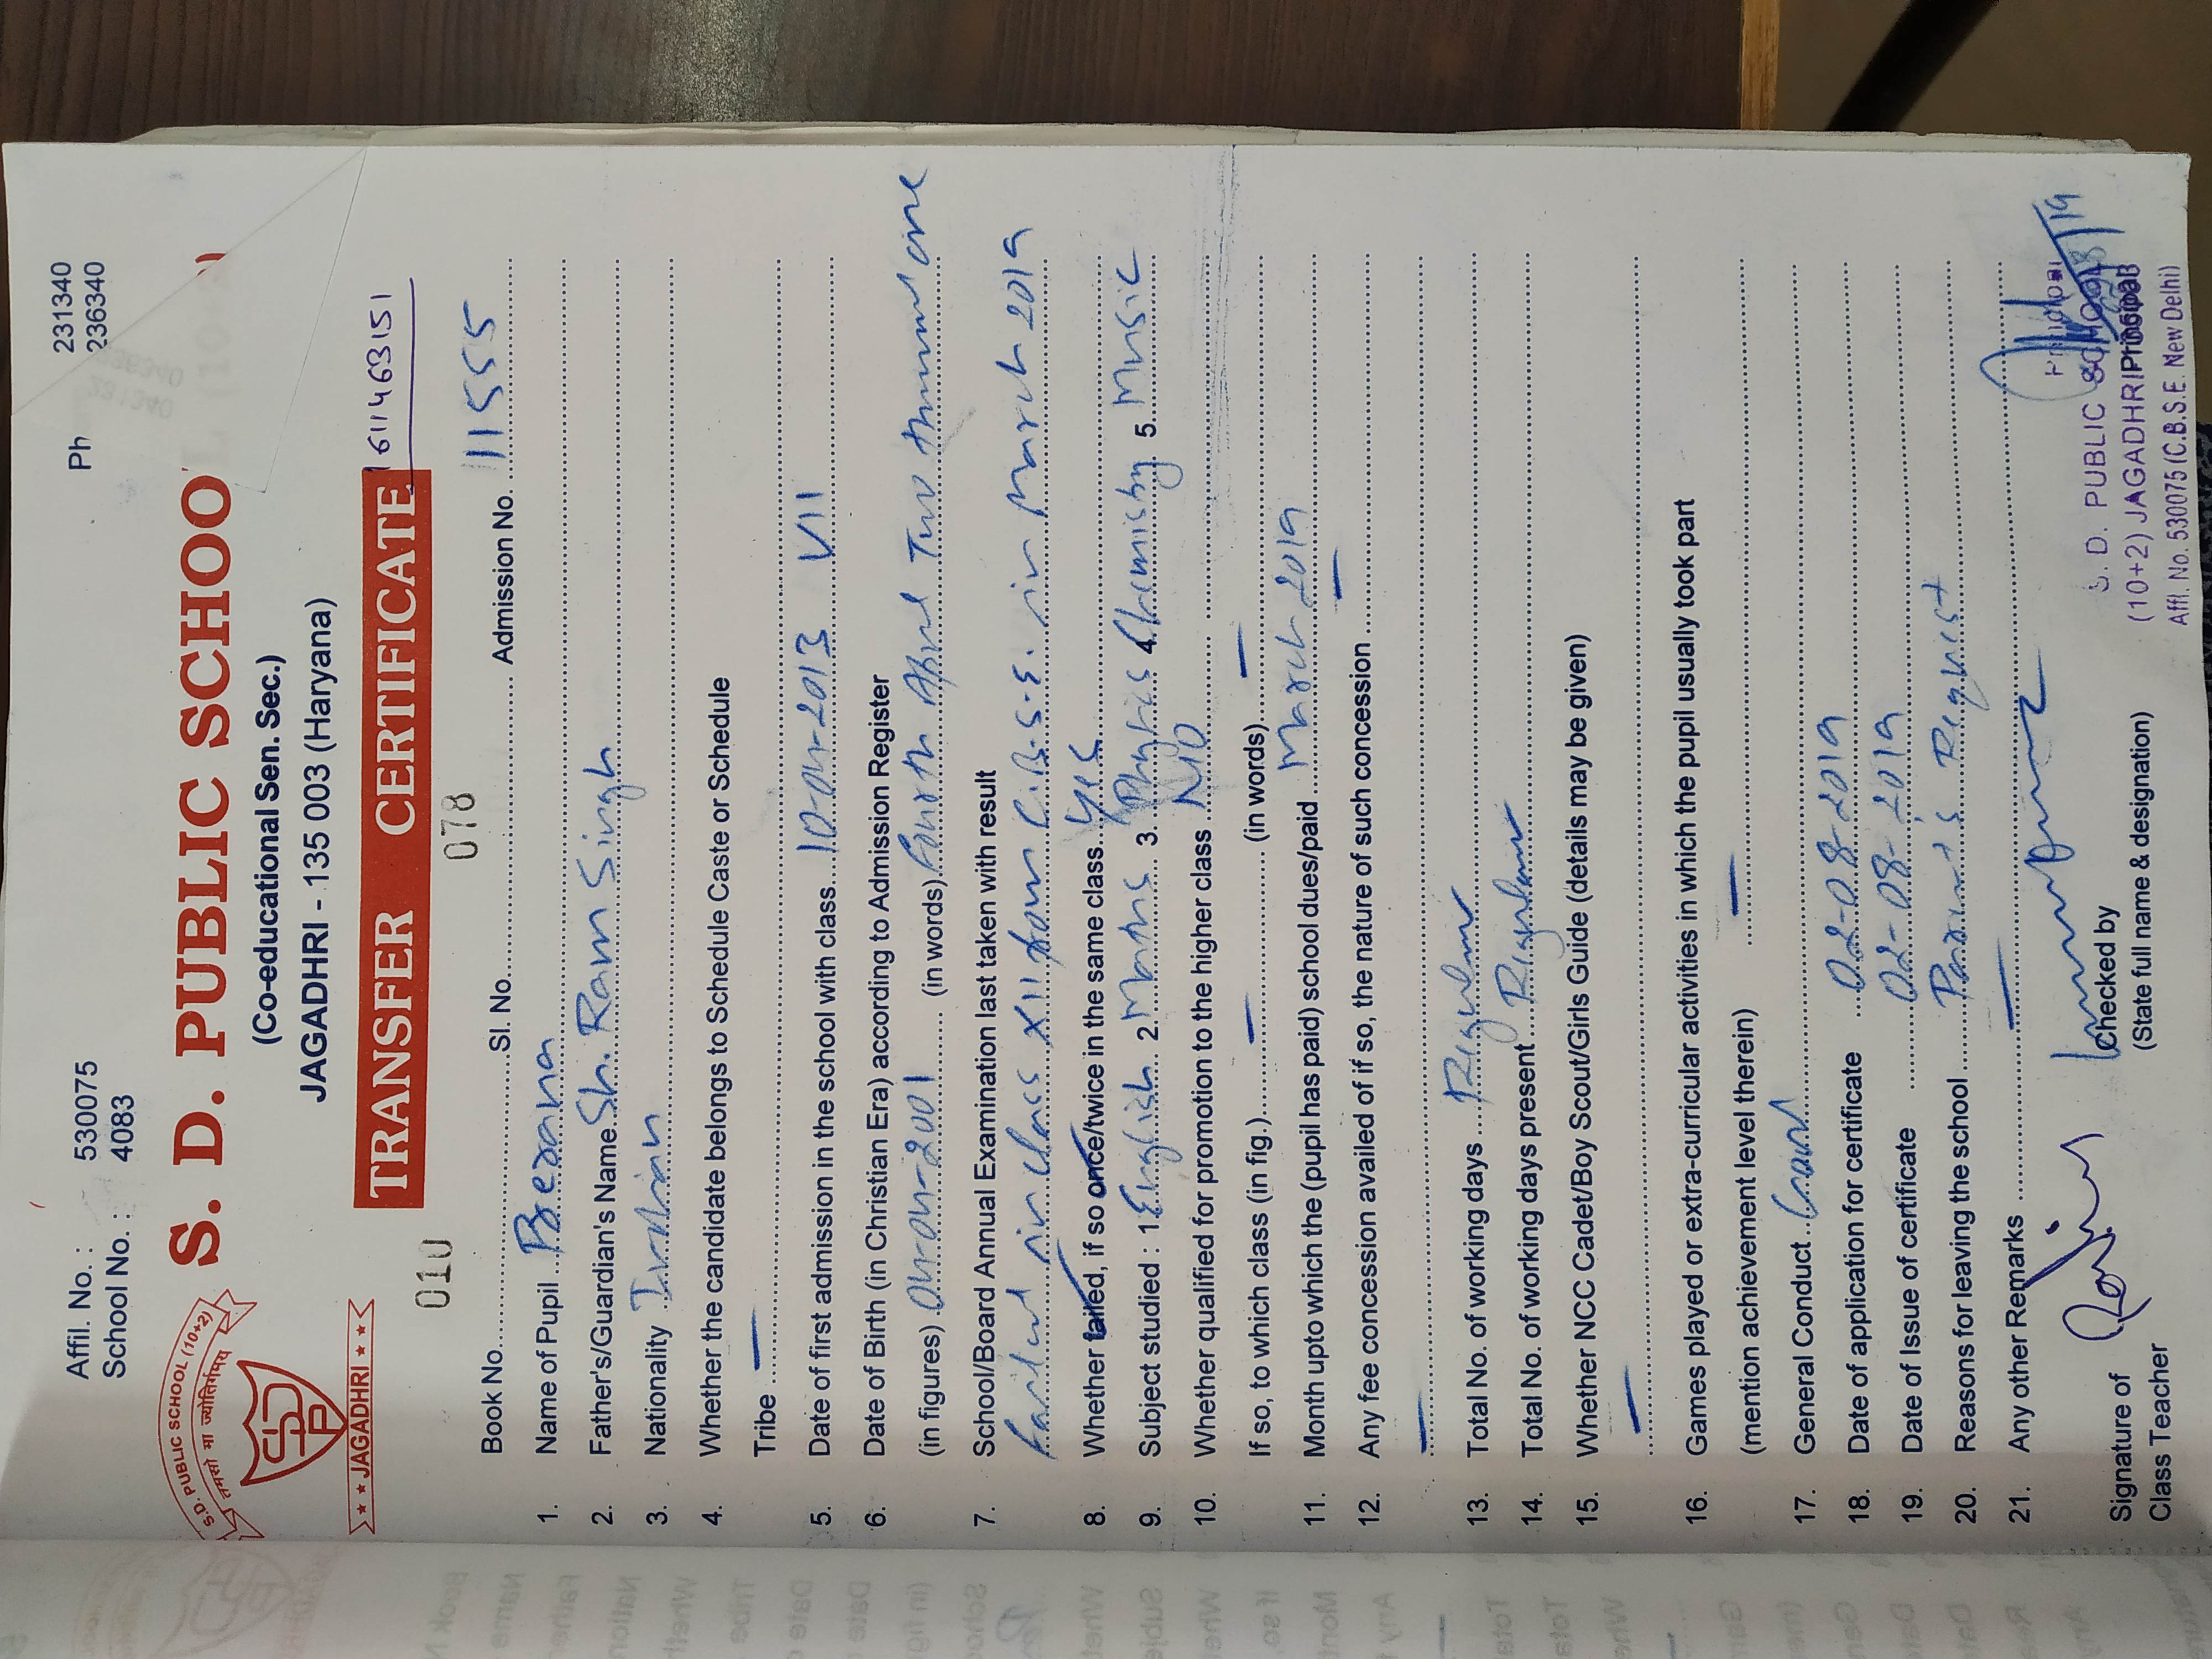 Affil. No. : 530075
School No. : 4083
Ph 231340
236340
S.D. PUBLIC SCHOOL (10+2)
तमसो मा ज्योतिर्गमय
SDP
JAGADHRI
S. D. PUBLIC SCHOO
(Co-educational Sen. Sec.)
JAGADHRI - 135 003 (Haryana)
TRANSFER CERTIFICATE
1611463151
010 078
Book No. Sl. No. Admission No. 11555
1. Name of Pupil Prerana
2. Father's/Guardian's Name Sh. Ram Singh
3. Nationality Indian
4. Whether the candidate belongs to Schedule Caste or Schedule
Tribe —
5. Date of first admission in the school with class 10-04-2013 VII
6. Date of Birth (in Christian Era) according to Admission Register
(in figures) 04-04-2001 (in words) Fourth April Two thousand one
7. School/Board Annual Examination last taken with result
Failed in class XII from C.B.S.E. in March 2019
8. Whether failed, if so once/twice in the same class Yes
9. Subject studied : 1. English 2. Maths 3. Physics 4. Chemistry 5. Music
10. Whether qualified for promotion to the higher class No
If so, to which class (in fig.) — (in words) —
11. Month upto which the (pupil has paid) school dues/paid March 2019
12. Any fee concession availed of if so, the nature of such concession —
—
13. Total No. of working days Regular
14. Total No. of working days present Regular
15. Whether NCC Cadet/Boy Scout/Girls Guide (details may be given)
—
16. Games played or extra-curricular activities in which the pupil usually took part
(mention achievement level therein) —
17. General Conduct Good
18. Date of application for certificate 02-08-2019
19. Date of Issue of certificate 02-08-2019
20. Reasons for leaving the school Parent's Request
21. Any other Remarks —
Signature of
Class Teacher
Checked by
(State full name & designation)
Principal
S. D. PUBLIC SCHOOL
(10+2) JAGADHRI
Affl. No. 530075 (C.B.S.E. New Delhi)